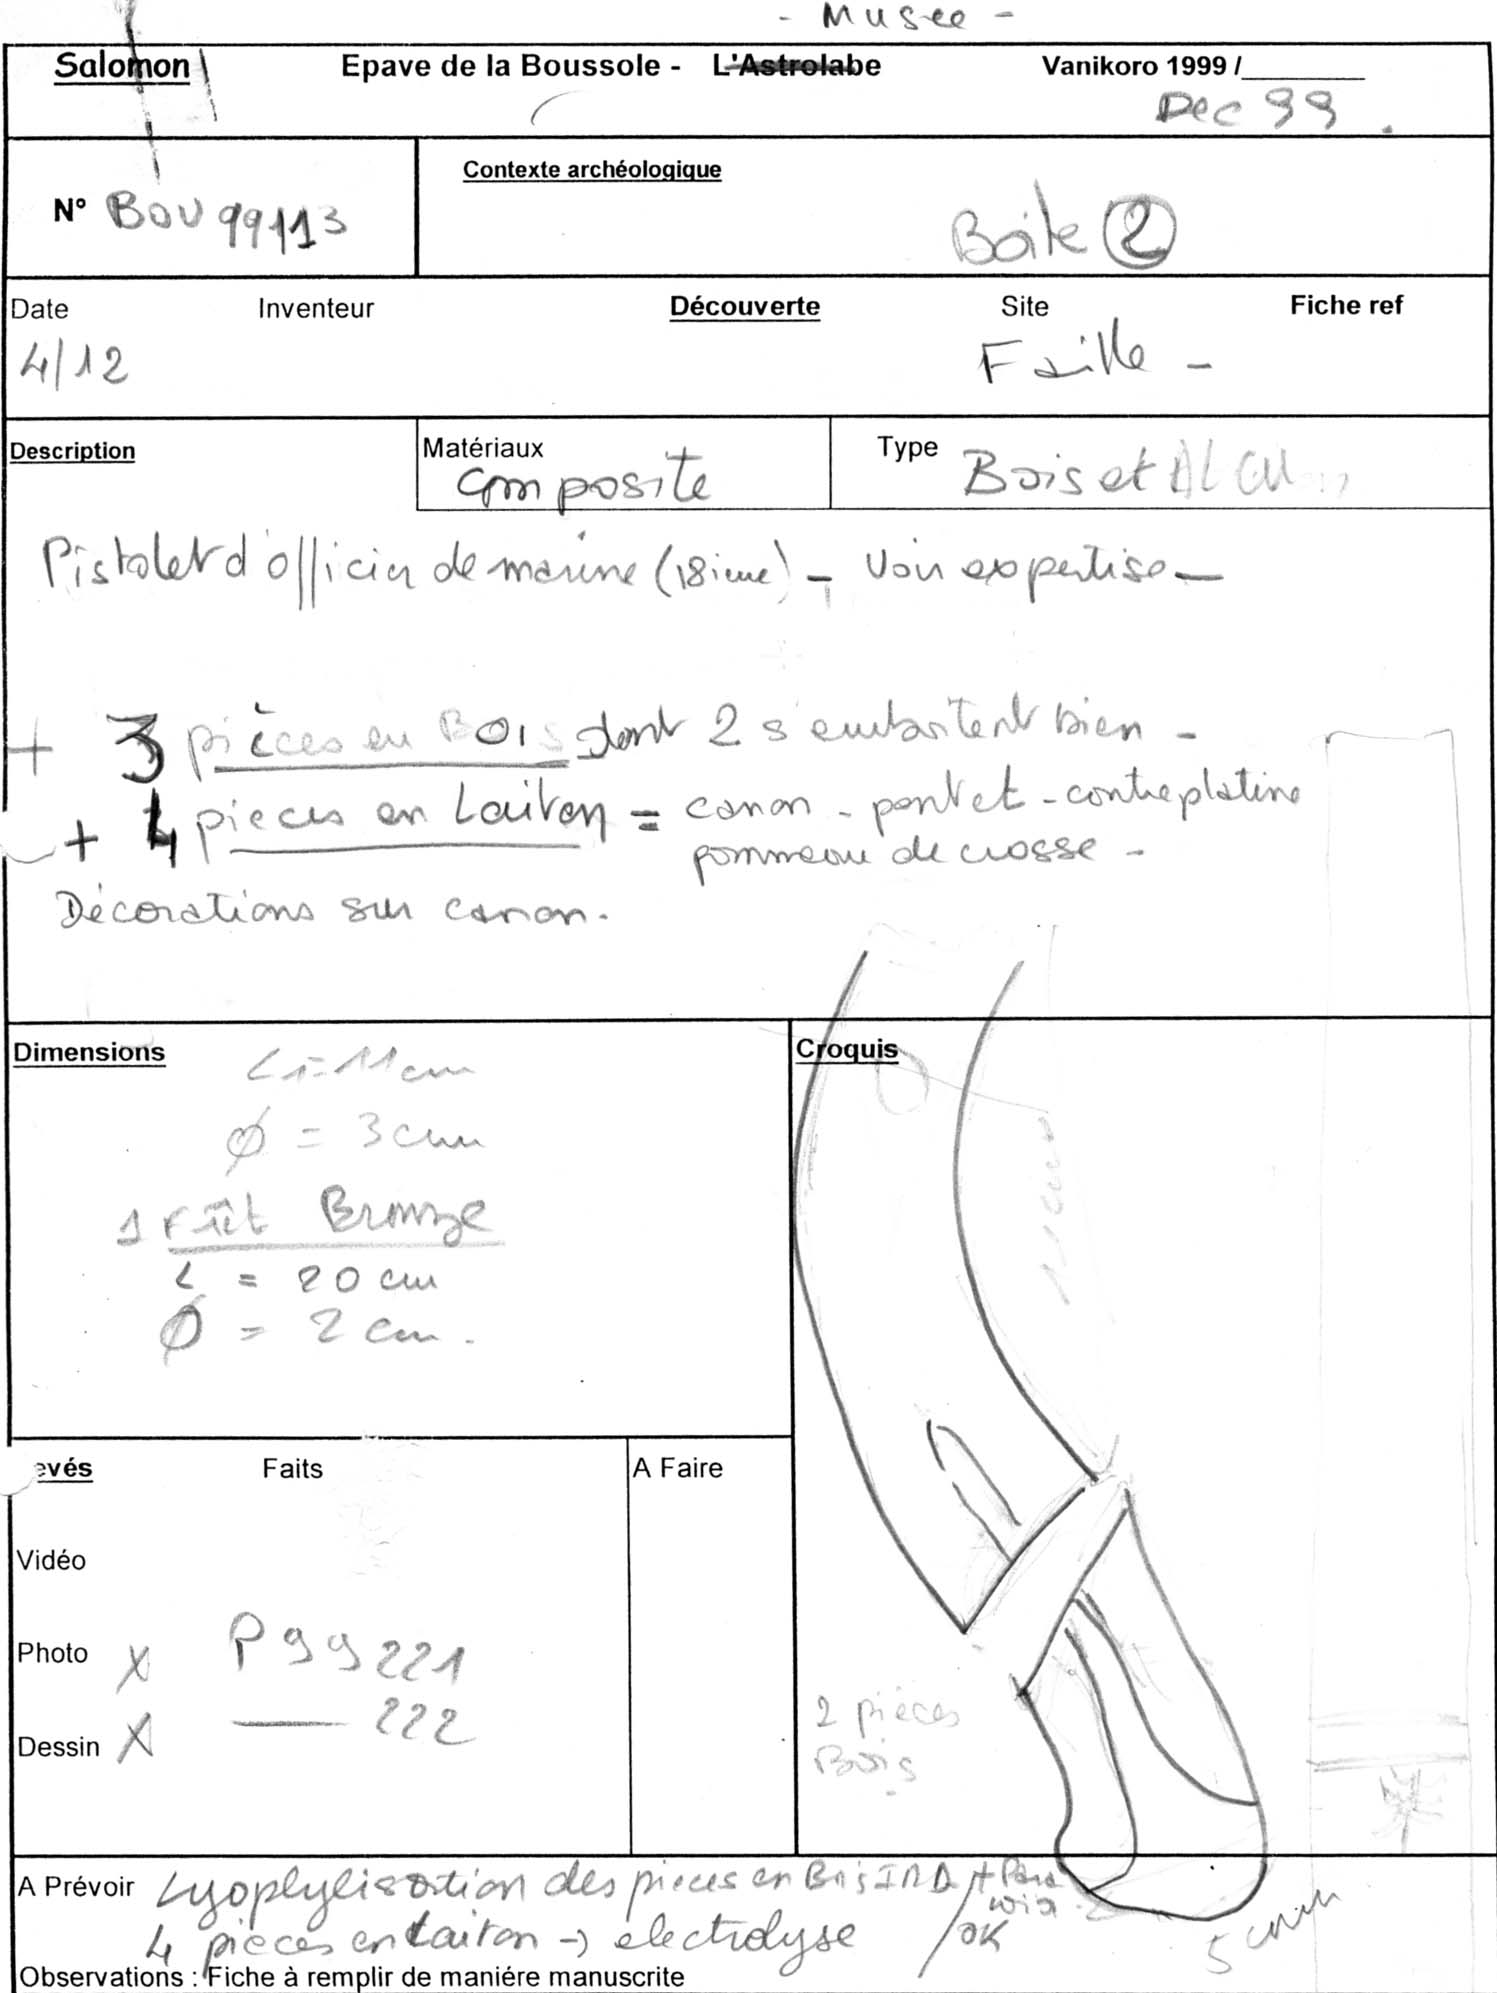 - Musee -
Salomon Epave de la Boussole - L'Astrolabe Vanikoro 1999 /
Dec 99.
N° BOU 99113 Contexte archéologique
Boite 2
Date Inventeur Découverte Site Fiche ref
4/12 Faille -
Description Matériaux Type
Composite Bois et ALCU
Pistolet d'officier de marine (18ieme) - Voir expertise -
+ 3 pièces en Bois dont 2 s'emboitent bien -
+ 4 pieces en Laiton = canon - pontet - contreplatine
pommeau de crosse -
Décorations sur canon.
Dimensions
L = 11 cm
Ø = 3 cm
1 Fût Bronze
L = 20 cm
Ø = 2 cm.
Croquis
11 cm
2 pièces
Bois
5 cm
evés Faits A Faire
Vidéo
Photo X P99221
— 222
Dessin X
A Prévoir Lyophylisation des pieces en Bois
4 pieces en Laiton -> electrolyse / OK
Observations : Fiche à remplir de maniére manuscrite